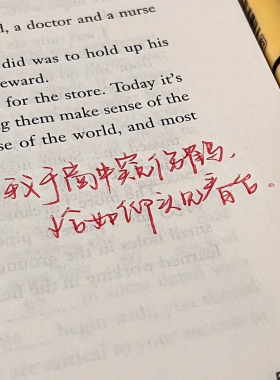 , a doctor and a nurse
did was to hold up his
eward.
for the store. Today it's
g them make sense of the
se of the world, and most
我于高中窥
恰如仰头见